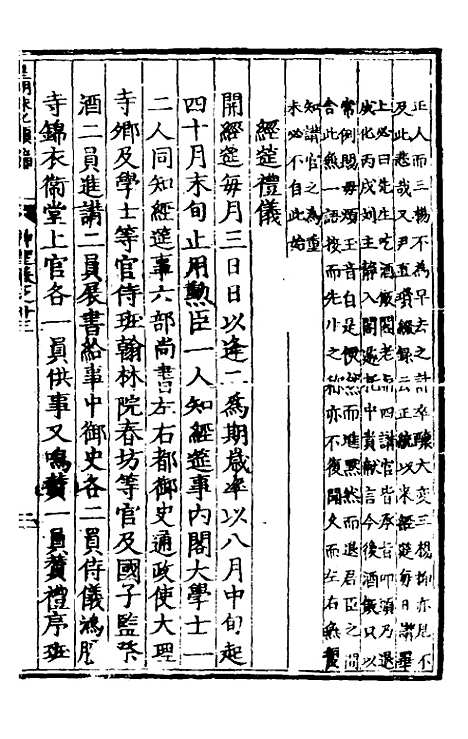 正人而三楊不為早去之計卒釀大變三楊抑亦見不
及此悲哉又尹直瑣綴錄云正統以來經筵每日講畢
上必曰先生吃酒飯閣老與四講官皆承旨叩頭乃退
成化丙戌劉主靜入閣中貴獻言今後酒飯只以
常例賜毋煩玉音自是默然而進默然而退君臣之間
合此無一語接而先生之稱亦不復聞久而左右無
知講官之為重
未必不自此始
經筵禮儀
開經筵每月三日日以逢二為期歲率以八月中旬起
四十月末旬止用勲臣一人知經筵事內閣大學士一
二人同知經筵事六部尚書左右都御史通政使大理
寺卿及學士等官侍班翰林院春坊等官及國子監祭
酒二員進講二員展書給事中御史各二員侍儀鴻臚
寺錦衣衛堂上官各一員供事又鳴贊一員贊禮序班